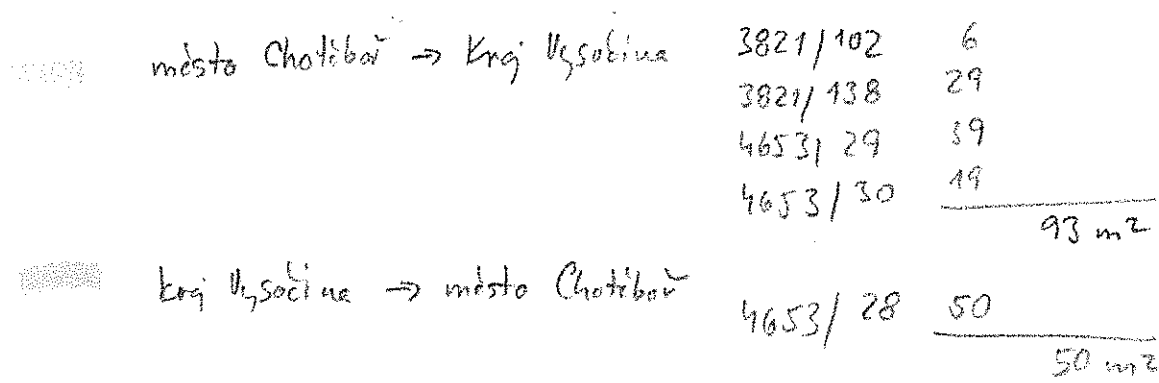 město Chotěboř → Kraj Vysočina 3821/102 6
3821/138 29
4653/29 39
4653/30 19
93 m2
kraj Vysočina → město Chotěboř 4653/28 50
50 m2